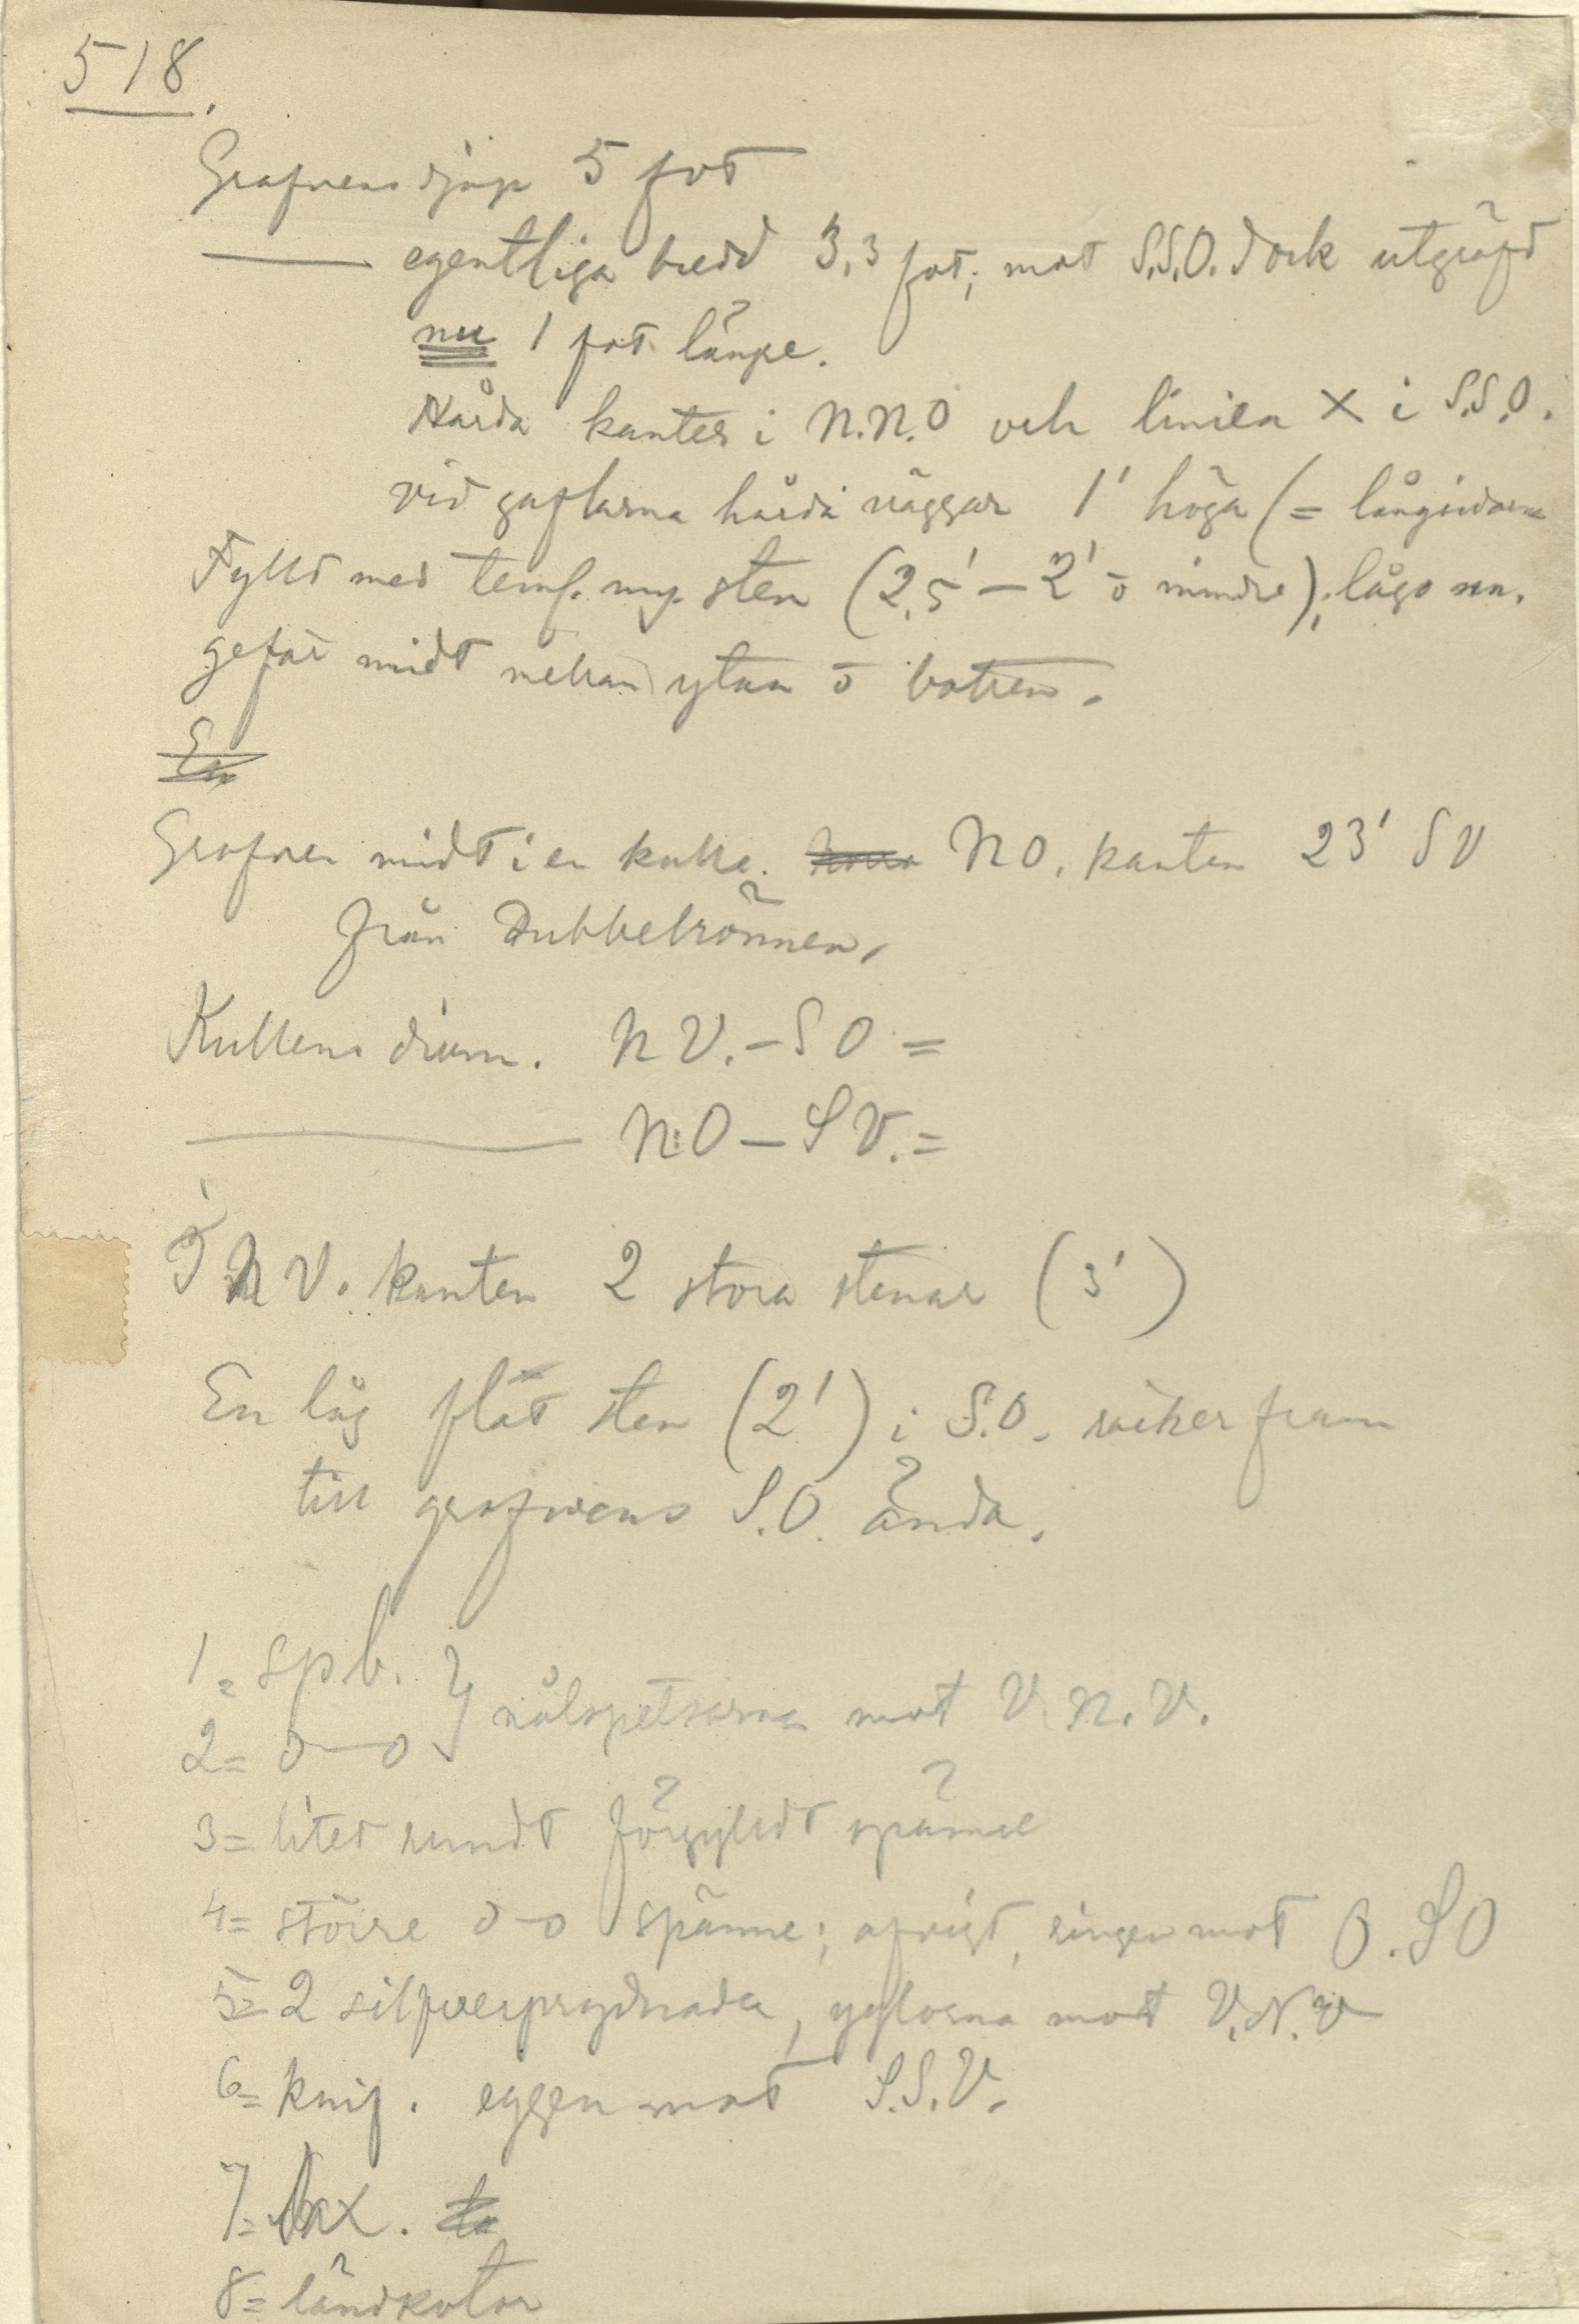 518.
Grafvens djup 5 fot
—— egentliga bredd 3,3 fot; mot S.S.O. dock utgräfd
nu 1 fot längre.
Hårda kanter i N.N.O och linien × i S.S.O.
vid gaflarna hårda väggar 1' höga (= långsidorna
Fylld med teml. myc. sten (2,5' — 2' o mindre); lågo un-
gefär midt mellan ytan o botten.
En
Grafven midt i en kulle. NO. kanten 23' SV
från Dubbelrönnen.
Kullens diam. NV. – SO =
—— N.O – SV. =
I NV. kanten 2 stora stenar (3')
En låg flat sten (2') i S.O. söker fram
till grafvens S.O. ända.
1 = spb. } nålspetsarna mot V.N.V.
2 = o—o
3 = litet rundt förgylldt spänne
4 = större o–o spänne; afvigt, ringen mot O.SO
5 = 2 silfverprydnader, öglorna mot V.N.V
6 = knif. eggen mot S.S.V.
7 = sax.
8 = ländkotor